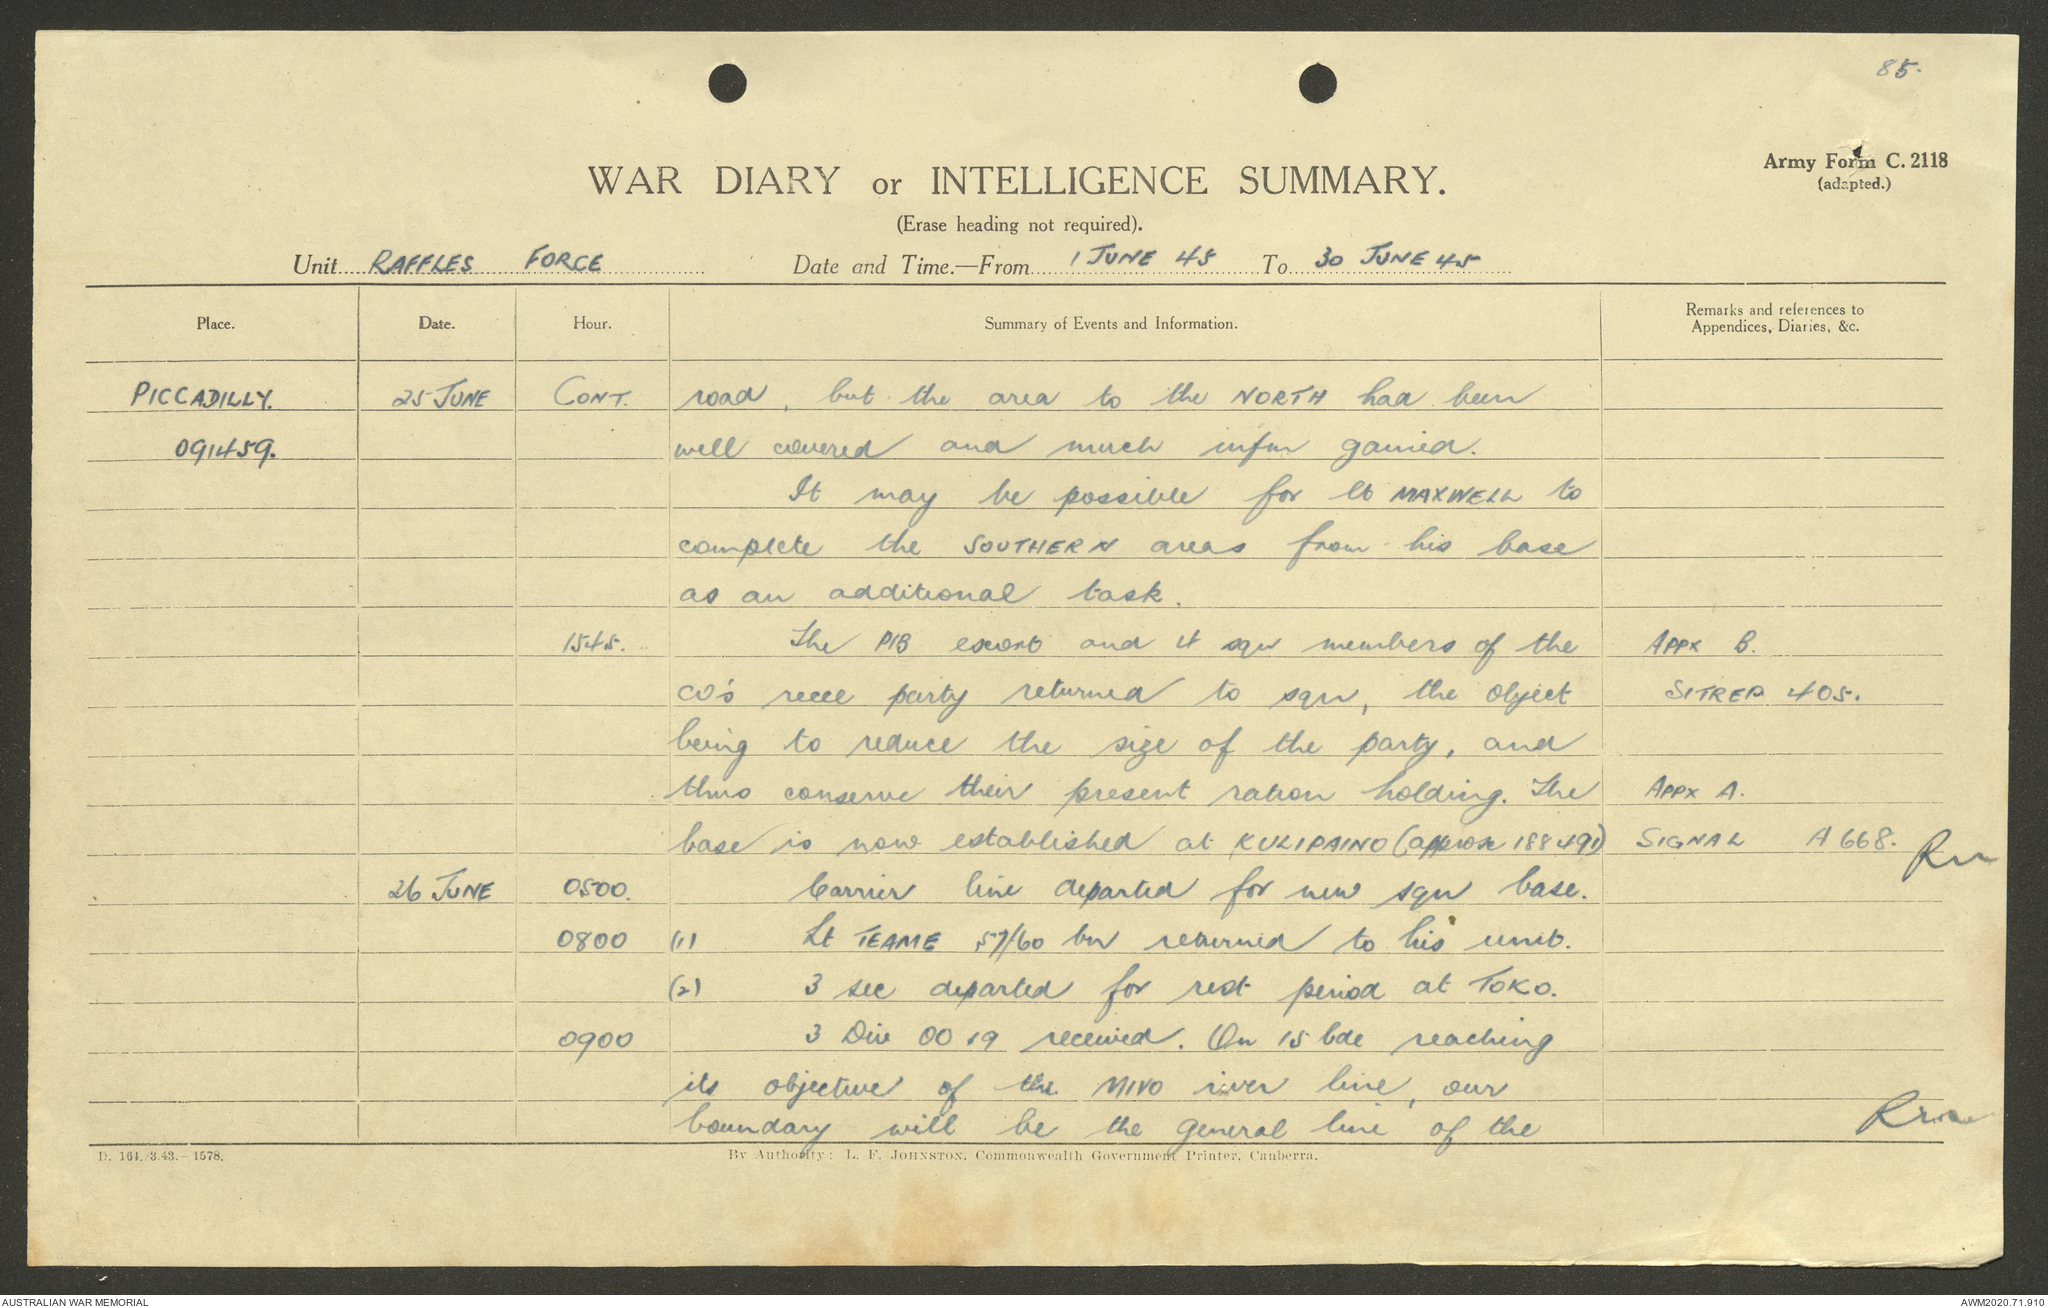 85.
Army Form C. 2118
(adapted.)
WAR DIARY or INTELLIGENCE SUMMARY.
(Erase heading not required).
Unit RAFFLES FORCE Date and Time.—From 1 JUNE 45 To 30 JUNE 45
Place. Date. Hour. Summary of Events and Information. Remarks and references to Appendices, Diaries, &c.
PICCADILLY. 25 JUNE CONT. road, but the area to the NORTH had been
091459. well covered and much infm gained.
It may be possible for Lt MAXWELL to
complete the SOUTHERN areas from his base
as an additional task.
1545. The PIB escort and 4 sqn members of the APPX B.
CO's recce party returned to sqn, the object SITREP 405.
being to reduce the size of the party, and
thus conserve their present ration holding. The APPX A.
base is now established at KULIPAINO (approx 188491) SIGNAL A 668.
26 JUNE 0500. Carrier line departed for new sqn base.
0800 (1) Lt TEAME 57/60 bn returned to his unit.
(2) 3 sec departed for rest period at TOKO.
0900 3 Div OO 19 received. On 15 bde reaching
its objective of the MIVO river line, our
boundary will be the general line of the
D. 164./3.43.—1578. By Authority: L. F. JOHNSTON, Commonwealth Government Printer, Canberra.
AUSTRALIAN WAR MEMORIAL AWM2020.71.910